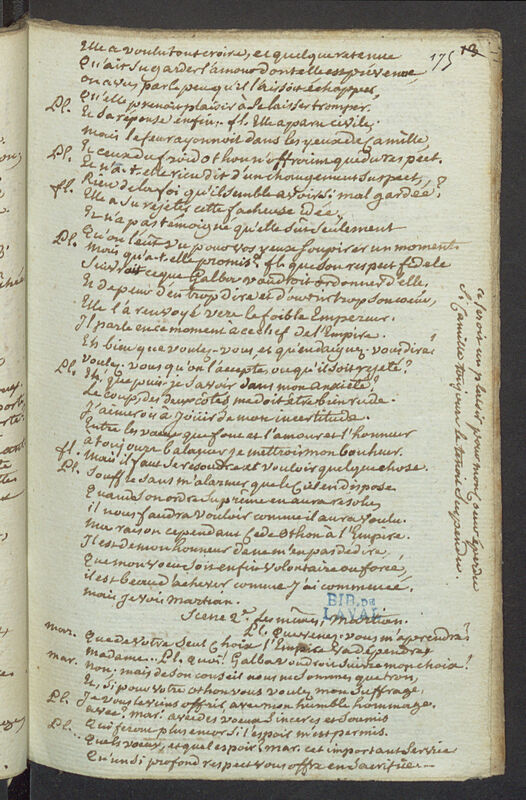 175 13
Elle a voulu tout croire, et quelque retenue
Qu'ait su garder l'amour dont elle est prévenue,
on a vu, par le peu qu'il laissoit échapper,
Qu'elle prenoit plaisir à se laisser tromper.
Pl. Et sa réponse enfin. fl. Elle a paru civile;
mais le feu rayonnoit dans les yeux de Camille,
Et ceux du froid othon n'offroient que du respect.
Pl. Et n'a-t-elle rien dit d'un changement suspect,
Rien de la foi qu'il semble avoir si mal gardée?
fl. Elle a su rejetter cette facheuse idée,
Et n'a pas témoigné qu'elle sût seulement
Qu'on l'eût vu pour vos yeux soupirer un moment.
Pl. Mais qu'a-t-elle promis? fl. que son respect fidele
Suivroit ce que Galba voudroit ordonner d'elle,
Et de peur d'en trop dire et d'ouvrir trop son coeur,
Elle l'a renvoyé vers le foible Empereur.
Il parle en ce moment à ce chef de l'Empire.
Eh bien que voulez-vous, et qu'en daignez-vous dire?
voulez-vous qu'on l'accepte, ou qu'il soit rejeté?
Pl. Eh! que puis-je savoir dans mon anxiété?
Le coup des deux côtés me doit être bien rude.
J'aimerois à jouir de mon incertitude.
Entre les voeux que font et l'amour et l'honneur
a toujours balancer je mettrois mon bonheur.
fl. Mais il faut se resoudre et vouloir quelque chose.
Pl. Souffre sans m'alarmer que le Ciel en dispose
Quand son ordre suprême en aura resolu,
il nous faudra vouloir comme il aura voulu.
Ma raison cependant cede Othon à l'Empire.
Il est de mon honneur de ne m'en pas dédire,
Que mon voeu soit enfin volontaire ou forcé,
il est beau d'achever comme j'ai commencé.
mais je vois martian.
Scene 2e. les mêmes, martian.
Pl. Que venez-vous m'aprendre?
mar. Que de votre seul choix l'Empire va dépendre,
Madame. Pl. quoi! Galba voudroit suivre mon choix?
mar. Non. mais de son conseil nous ne sommes que trois,
Et si pour votre othon vous voulez mon suffrage,
Je vous le viens offrir avec mon humble hommage.
Pl. avec? mar. avec des voeux sinceres et soumis
Qui feront plus encor si l'espoir m'est permis.
Pl. Quels voeux, et quel espoir, mar. cet important service
Qu'un si profond respect vous offre en sacrifice....
ce seroit un plaisir pour mon coeur éperdu
Si Camille toujours le tenoit suspendu.
BIB. DE
LAVAL